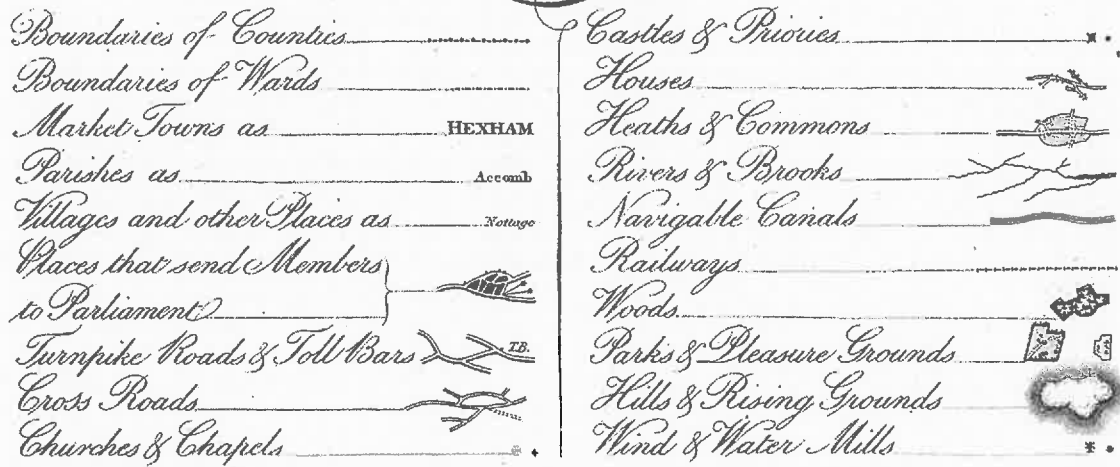 Boundaries of Counties
Boundaries of Wards
Market Towns as HEXHAM
Parishes as Accomb
Villages and other Places as Nottage
Places that send Members
to Parliament
Turnpike Roads & Toll Bars T.B.
Cross Roads
Churches & Chapels
Castles & Priories
Houses
Heaths & Commons
Rivers & Brooks
Navigable Canals
Railways
Woods
Parks & Pleasure Grounds
Hills & Rising Grounds
Wind & Water Mills